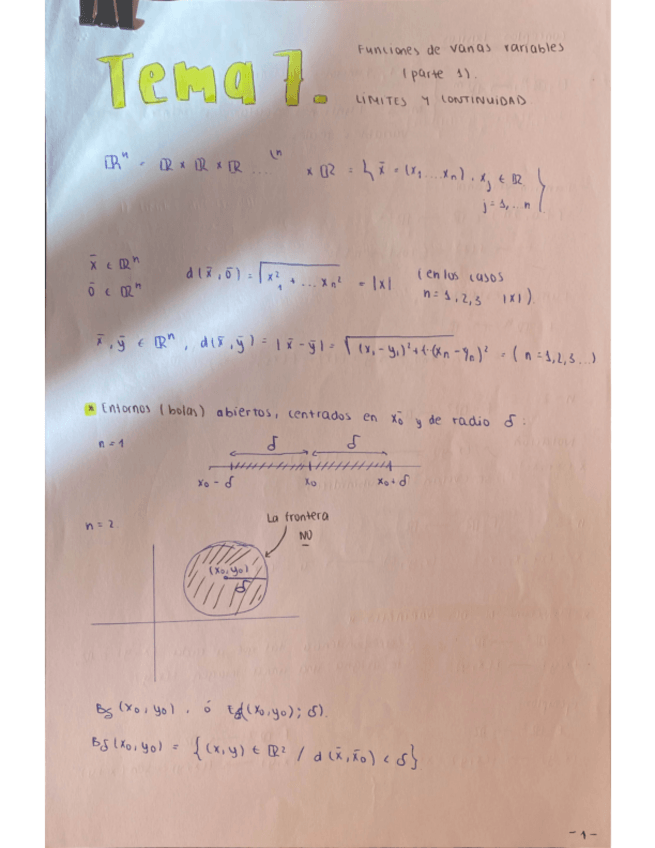 Funciones de varias variables
Tema 7.
(parte 1).
LIMITES Y CONTINUIDAD
ℝⁿ = ℝ × ℝ × ℝ .... (n × ℝ = { x̄ = (x₁ ... xₙ), xⱼ ∈ ℝ }
j = 1, ... n
x̄ ∈ ℝⁿ
ō ∈ ℝⁿ
d(x̄, ō) = √(x₁² + ... xₙ²) = |x|
(en los casos
n = 1, 2, 3 |x|).
x̄, ȳ ∈ ℝⁿ, d(x̄, ȳ) = |x̄ - ȳ| = √((x₁ - y₁)² + (xₙ - yₙ)²) = (n = 1, 2, 3 ...)
* Entornos (bolas) abiertos, centrados en x̄₀ y de radio δ:
n = 1
δ δ
x₀ - δ x₀ x₀ + δ
n = 2
La frontera
NO
(x₀, y₀)
δ
Bδ (x₀, y₀), ó Ed((x₀, y₀); δ).
Bδ (x₀, y₀) = { (x, y) ∈ ℝ² / d (x̄, x̄₀) < δ }
- 1 -